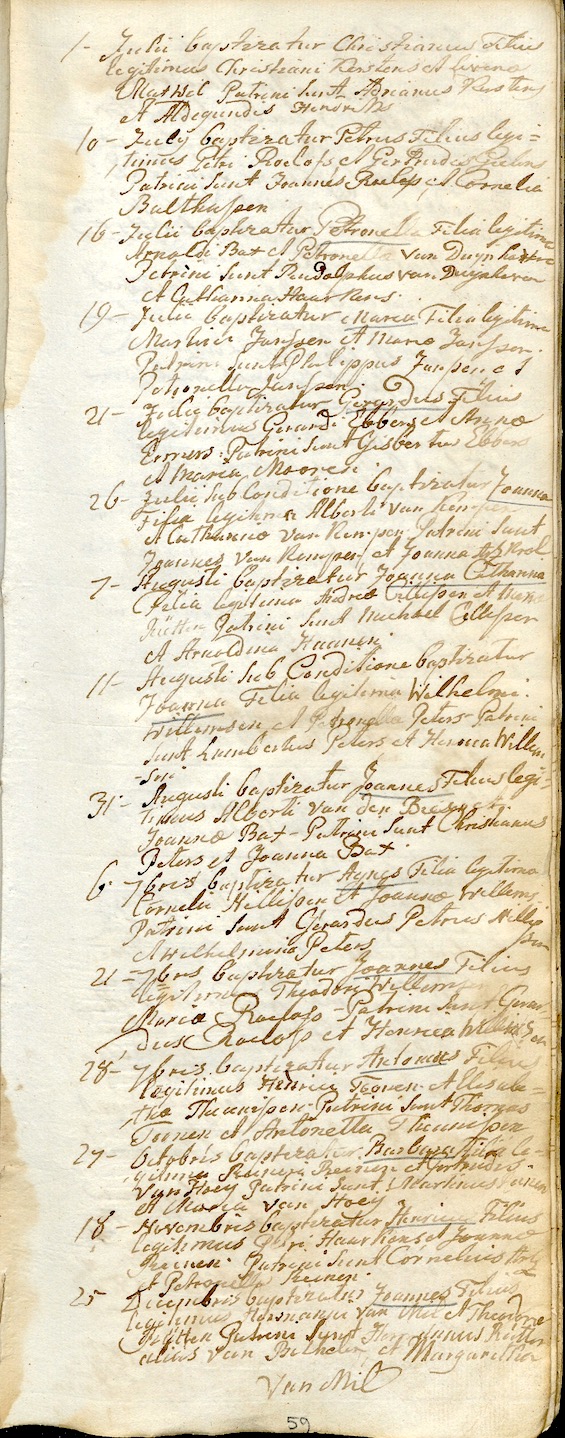 1- Julii baptizatur Christianus Filius
legitimus Christiani Kersten et
Patrini sunt Adrianus Kersten
et Aldegundis Hendriks
10- July baptizatur Petrus Filius legi=
timus Petri Roelofs et Gertrudis
Patrini sunt Joannes Roelofs et Cornelia
Balthussen
16- Julii baptizatur Petronella Filia legitima
Arnoldi Bax et Petronella van Duynhoven
Patrini sunt Rudolphus van Duynhoven
et Catharina Haarkens
19- Julii baptizatur Maria Filia legitima
Martini Janssen et Maria Janssen
Patrini sunt Philippus Janssen et
Petronella Janssen
21- Julii baptizatur Gerardus Filius
legitimus Gerardi Ebbers et Anna
Ermers. Patrini sunt Gisbertus Ebbers
et Maria
26- Julii sub Conditione baptizatur Joanna
Filia legitima Alberti van Kempen
et Catharina van Kempen. Patrini sunt
Joannes van Kempen et Joanna
7- Augusti baptizatur Joanna Catharina
Filia legitima Andrea et
Rütten Patrini sunt Michael
et Arnoldina Haanen
11- Augusti sub Conditione baptizatur
Joanna Filia legitima Wilhelmi
Willemsen et Petronella Peters- Patrini
sunt Lambertus Peters et Henrica Willem
-sen
31- Augusti baptizatur Joannes Filius legi-
timus Alberti van den et
Joanna Bax- Patrini sunt Christianus
Peters et Joanna Bax
6- 7bris baptizatur Agnes Filia legitima
Cornelii Hellissen et Joanna Willems
Patrini sunt Gerardus Petrus
et Wilhelmina Peters
21- 7bris baptizatur Joannes Filius
legitimus Theodori Willemsen
Maria Roelofs- Patrini sunt Gerar
dus Roelofs et Henrica Willemsen
28- 7bris baptizatur Antonius Filius
legitimus Henrici Toonen et Elisabe=
tha Theunissen- Patrini sunt Thomas
Toonen et Antonella Theunissen
27- Octobris baptizatur Barbara Filia le-
gitima Reinen et Gertrudis
van Hoey Patrini sunt Martinus
et Maria van Hoey
18- Novembris baptizatur Henricus Filius
legitimus Petri Haarkens et Joanna
Reinen. Patrini sunt Cornelius
et Petronella Reinen
25 Decembris baptizatus Joannes Filius
legitimus Hermanni van Mil et Theodora
Rütten Patrini sunt Hermanus Rütten
alias van et Margaretha
van Mil
59